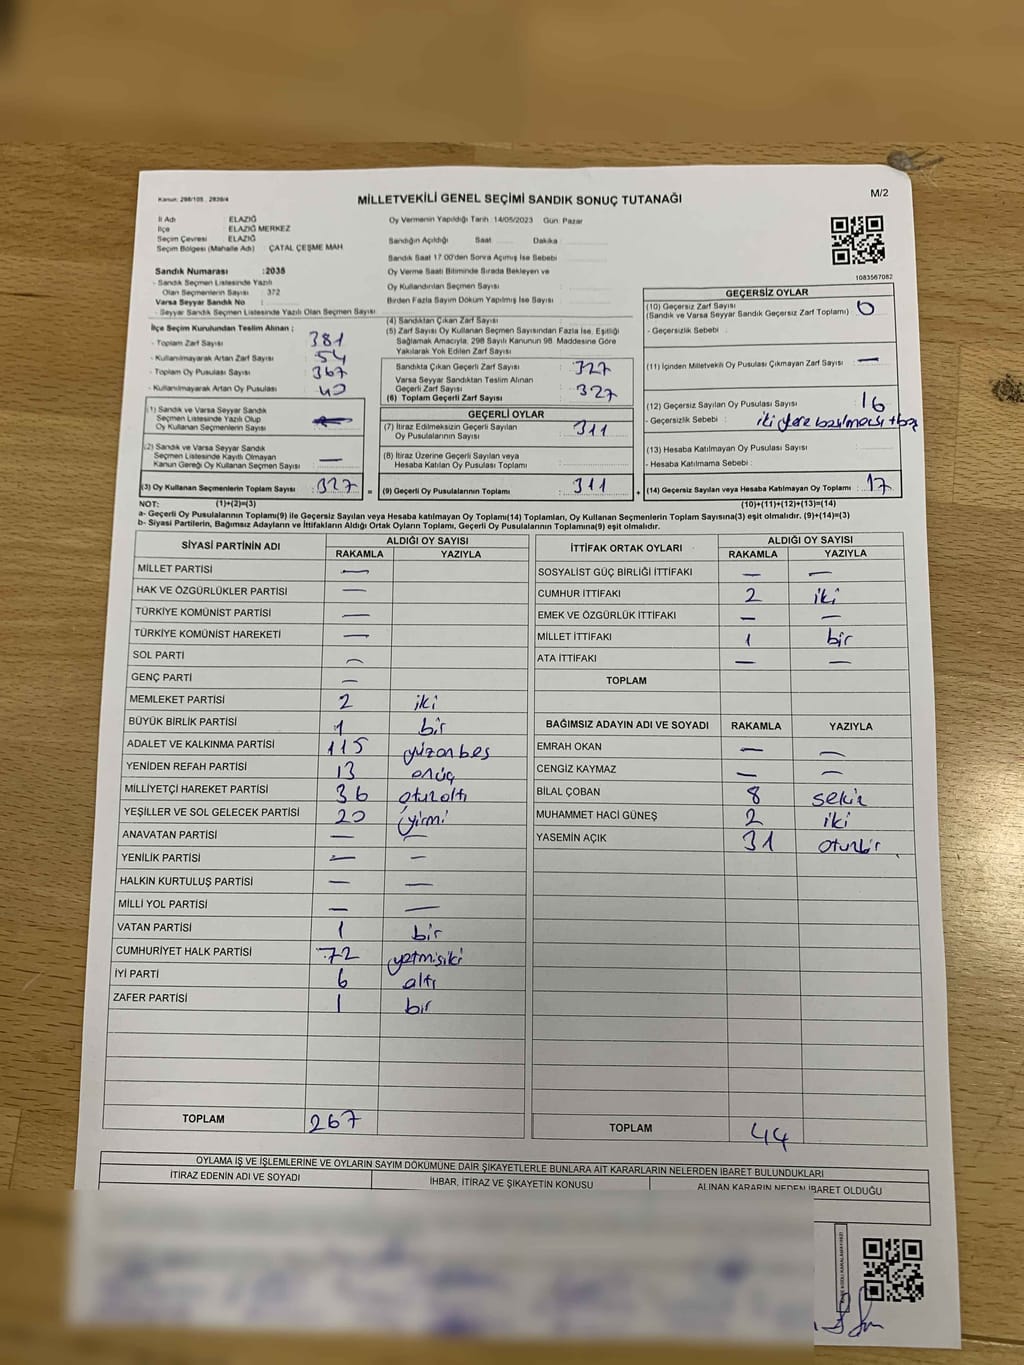 Kanun: 298/105 , 2839/4
MİLLETVEKİLİ GENEL SEÇİMİ SANDIK SONUÇ TUTANAĞI
M/2
İl Adı : ELAZIĞ
İlçe : ELAZIĞ MERKEZ
Seçim Çevresi : ELAZIĞ
Seçim Bölgesi (Mahalle Adı) : ÇATAL ÇEŞME MAH
Sandık Numarası :2038
- Sandık Seçmen Listesinde Yazılı
Olan Seçmenlerin Sayısı : 372
Varsa Seyyar Sandık No :
- Seyyar Sandık Seçmen Listesinde Yazılı Olan Seçmen Sayısı
Oy Vermenin Yapıldığı Tarih :14/05/2023 Gün: Pazar
Sandığın Açıldığı Saat Dakika
Sandık Saat 17:00'den Sonra Açımış İse Sebebi
Oy Verme Saati Bitiminde Sırada Bekleyen ve
Oy Kullandırılan Seçmen Sayısı
Birden Fazla Sayım Döküm Yapılmış İse Sayısı
1083567082
İlçe Seçim Kurulundan Teslim Alınan ;
- Toplam Zarf Sayısı : 381
- Kullanılmayarak Artan Zarf Sayısı : 54
- Toplam Oy Pusulası Sayısı : 367
- Kullanılmayarak Artan Oy Pusulası : 40
(1) Sandık ve Varsa Seyyar Sandık
Seçmen Listesinde Yazılı Olup
Oy Kullanan Seçmenlerin Sayısı
(2) Sandık ve Varsa Seyyar Sandık
Seçmen Listesinde Kayıtlı Olmayan
Kanun Gereği Oy Kullanan Seçmen Sayısı : —
(3) Oy Kullanan Seçmenlerin Toplam Sayısı : 327
(4) Sandıktan Çıkan Zarf Sayısı
(5) Zarf Sayısı Oy Kullanan Seçmen Sayısından Fazla İse, Eşitliği
Sağlamak Amacıyla, 298 Sayılı Kanunun 98. Maddesine Göre
Yakılarak Yok Edilen Zarf Sayısı
Sandıkta Çıkan Geçerli Zarf Sayısı : 327
Varsa Seyyar Sandıktan Teslim Alınan
Geçerli Zarf Sayısı
(6) Toplam Geçerli Zarf Sayısı : 327
GEÇERLİ OYLAR
(7) İtiraz Edilmeksizin Geçerli Sayılan
Oy Pusulalarının Sayısı : 311
(8) İtiraz Üzerine Geçerli Sayılan veya
Hesaba Katılan Oy Pusulası Toplamı
= (9) Geçerli Oy Pusulalarının Toplamı : 311
GEÇERSİZ OYLAR
(10) Geçersiz Zarf Sayısı
(Sandık ve Varsa Seyyar Sandık Geçersiz Zarf Toplamı) : 0
- Geçersizlik Sebebi :
(11) İçinden Milletvekili Oy Pusulası Çıkmayan Zarf Sayısı : —
(12) Geçersiz Sayılan Oy Pusulası Sayısı : 16
- Geçersizlik Sebebi : iki yere basılması
(13) Hesaba Katılmayan Oy Pusulası Sayısı :
- Hesaba Katılmama Sebebi :
+ (14) Geçersiz Sayılan veya Hesaba Katılmayan Oy Toplamı : 17
NOT: (1)+(2)=(3) (10)+(11)+(12)+(13)=(14)
a- Geçerli Oy Pusulalarının Toplamı(9) ile Geçersiz Sayılan veya Hesaba katılmayan Oy Toplamı(14) Toplamları, Oy Kullanan Seçmenlerin Toplam Sayısına(3) eşit olmalıdır. (9)+(14)=(3)
b- Siyasi Partilerin, Bağımsız Adayların ve İttifakların Aldığı Ortak Oyların Toplamı, Geçerli Oy Pusulalarının Toplamına(9) eşit olmalıdır.
SİYASİ PARTİNİN ADI ALDIĞI OY SAYISI
RAKAMLA YAZIYLA
MİLLET PARTİSİ —
HAK VE ÖZGÜRLÜKLER PARTİSİ —
TÜRKİYE KOMÜNİST PARTİSİ —
TÜRKİYE KOMÜNİST HAREKETİ —
SOL PARTİ —
GENÇ PARTİ —
MEMLEKET PARTİSİ 2 iki
BÜYÜK BİRLİK PARTİSİ 1 bir
ADALET VE KALKINMA PARTİSİ 115 yüzonbeş
YENİDEN REFAH PARTİSİ 13 onüç
MİLLİYETÇİ HAREKET PARTİSİ 36 otuzaltı
YEŞİLLER VE SOL GELECEK PARTİSİ 20 yirmi
ANAVATAN PARTİSİ — —
YENİLİK PARTİSİ — —
HALKIN KURTULUŞ PARTİSİ — —
MİLLİ YOL PARTİSİ — —
VATAN PARTİSİ 1 bir
CUMHURİYET HALK PARTİSİ 72 yetmişiki
İYİ PARTİ 6 altı
ZAFER PARTİSİ 1 bir
TOPLAM 267
İTTİFAK ORTAK OYLARI ALDIĞI OY SAYISI
RAKAMLA YAZIYLA
SOSYALİST GÜÇ BİRLİĞİ İTTİFAKI — —
CUMHUR İTTİFAKI 2 iki
EMEK VE ÖZGÜRLÜK İTTİFAKI — —
MİLLET İTTİFAKI 1 bir
ATA İTTİFAKI — —
TOPLAM
BAĞIMSIZ ADAYIN ADI VE SOYADI RAKAMLA YAZIYLA
EMRAH OKAN — —
CENGİZ KAYMAZ — —
BİLAL ÇOBAN 8 sekiz
MUHAMMET HACİ GÜNEŞ 2 iki
YASEMİN AÇIK 31 otuzbir
TOPLAM 44
OYLAMA İŞ VE İŞLEMLERİNE VE OYLARIN SAYIM DÖKÜMÜNE DAİR ŞİKAYETLERLE BUNLARA AİT KARARLARIN NELERDEN İBARET BULUNDUKLARI
İTİRAZ EDENİN ADI VE SOYADI İHBAR, İTİRAZ VE ŞİKAYETİN KONUSU ALINAN KARARIN NEDEN İBARET OLDUĞU